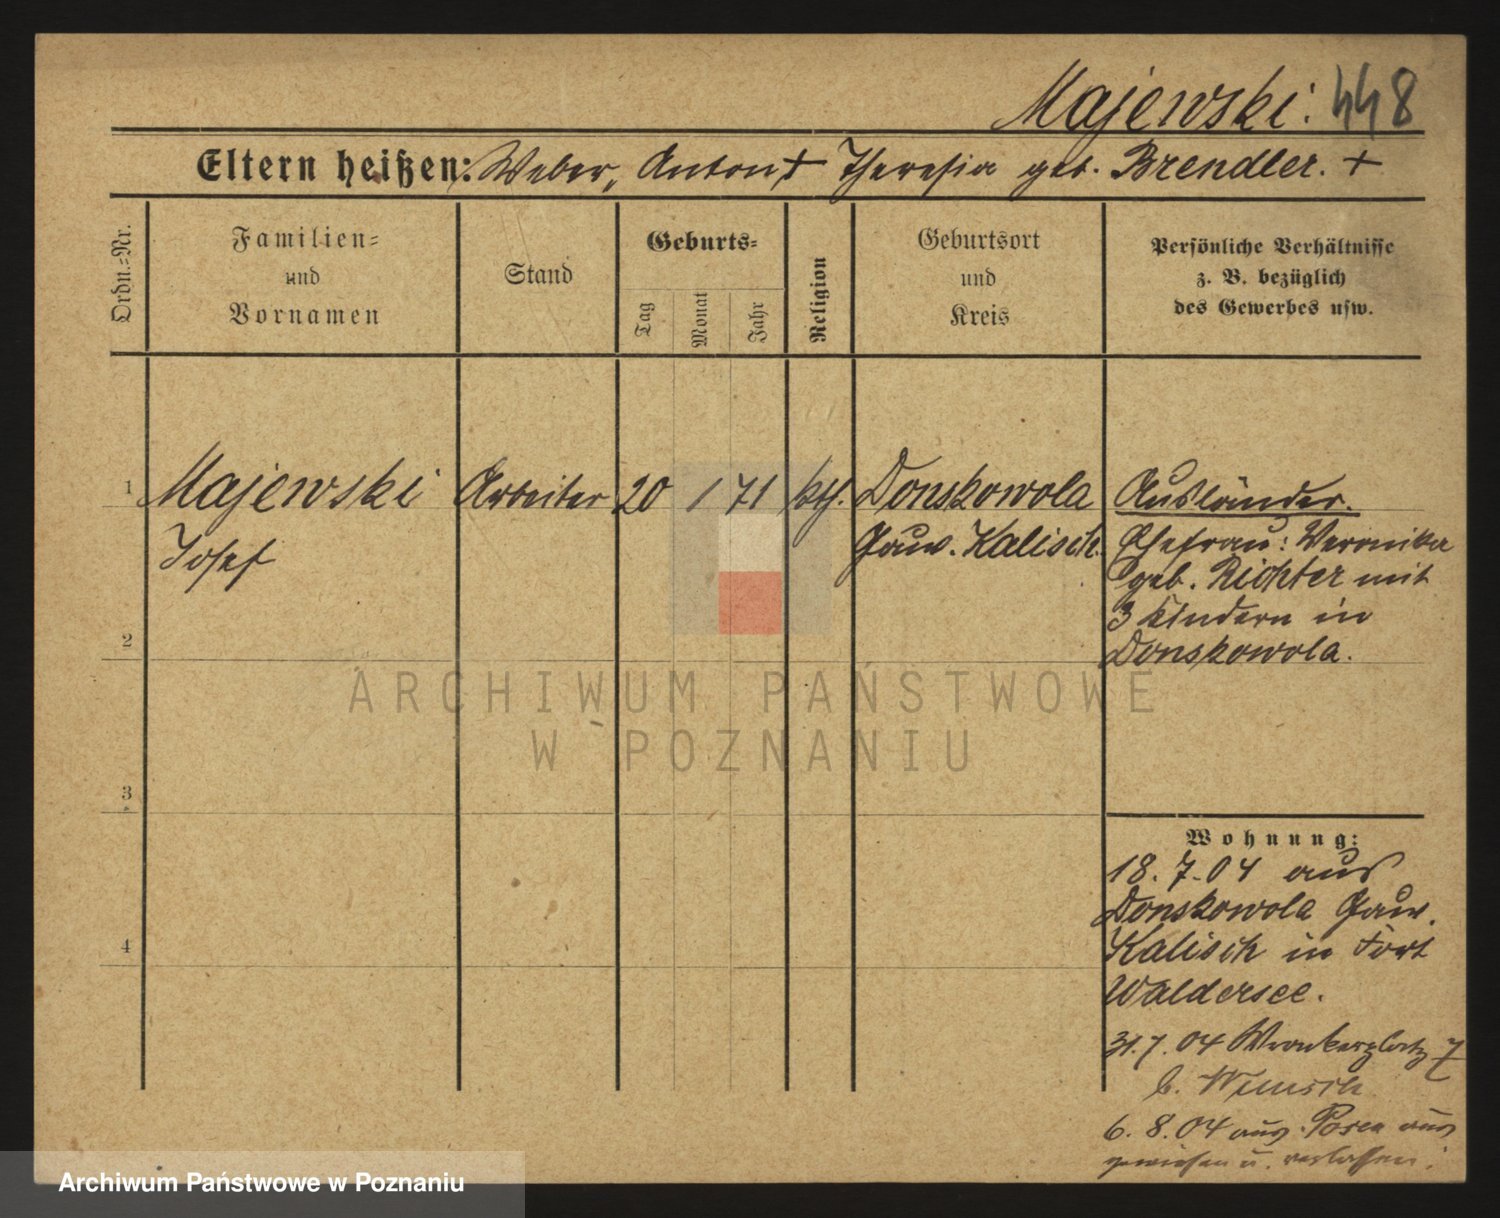 Majewski. 448
Eltern heißen: Weber, Anton † Theresia geb. Brendler. †
Ordn.-Nr.
Familien- und Vornamen
Stand
Geburts-
Tag
Monat
Jahr
Religion
Geburtsort und Kreis
Persönliche Verhältnisse
z. B. bezüglich
des Gewerbes usw.
1 Majewski Arbeiter 20 1 71 kth. Donskowola Ausländer.
Josef
Gouv. Kalisch.
Ehefrau: Veronika
geb. Richter mit
3 Kindern in
Donskowola.
2
3
4
Wohnung:
18.7.04 aus
Donskowola Gouv.
Kalisch in Fort
Waldersee.
31.7.04 Wronkerplatz 7
b. Wunsch
6.8.04 aus Posen aus
gewiesen u. verlassen.
ARCHIWUM PAŃSTWOWE
W POZNANIU
Archiwum Państwowe w Poznaniu